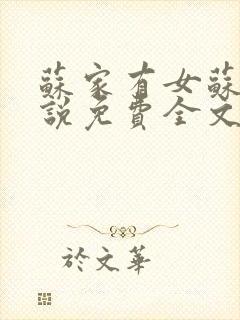 蘇家有女蘇
說免費全文
於文華